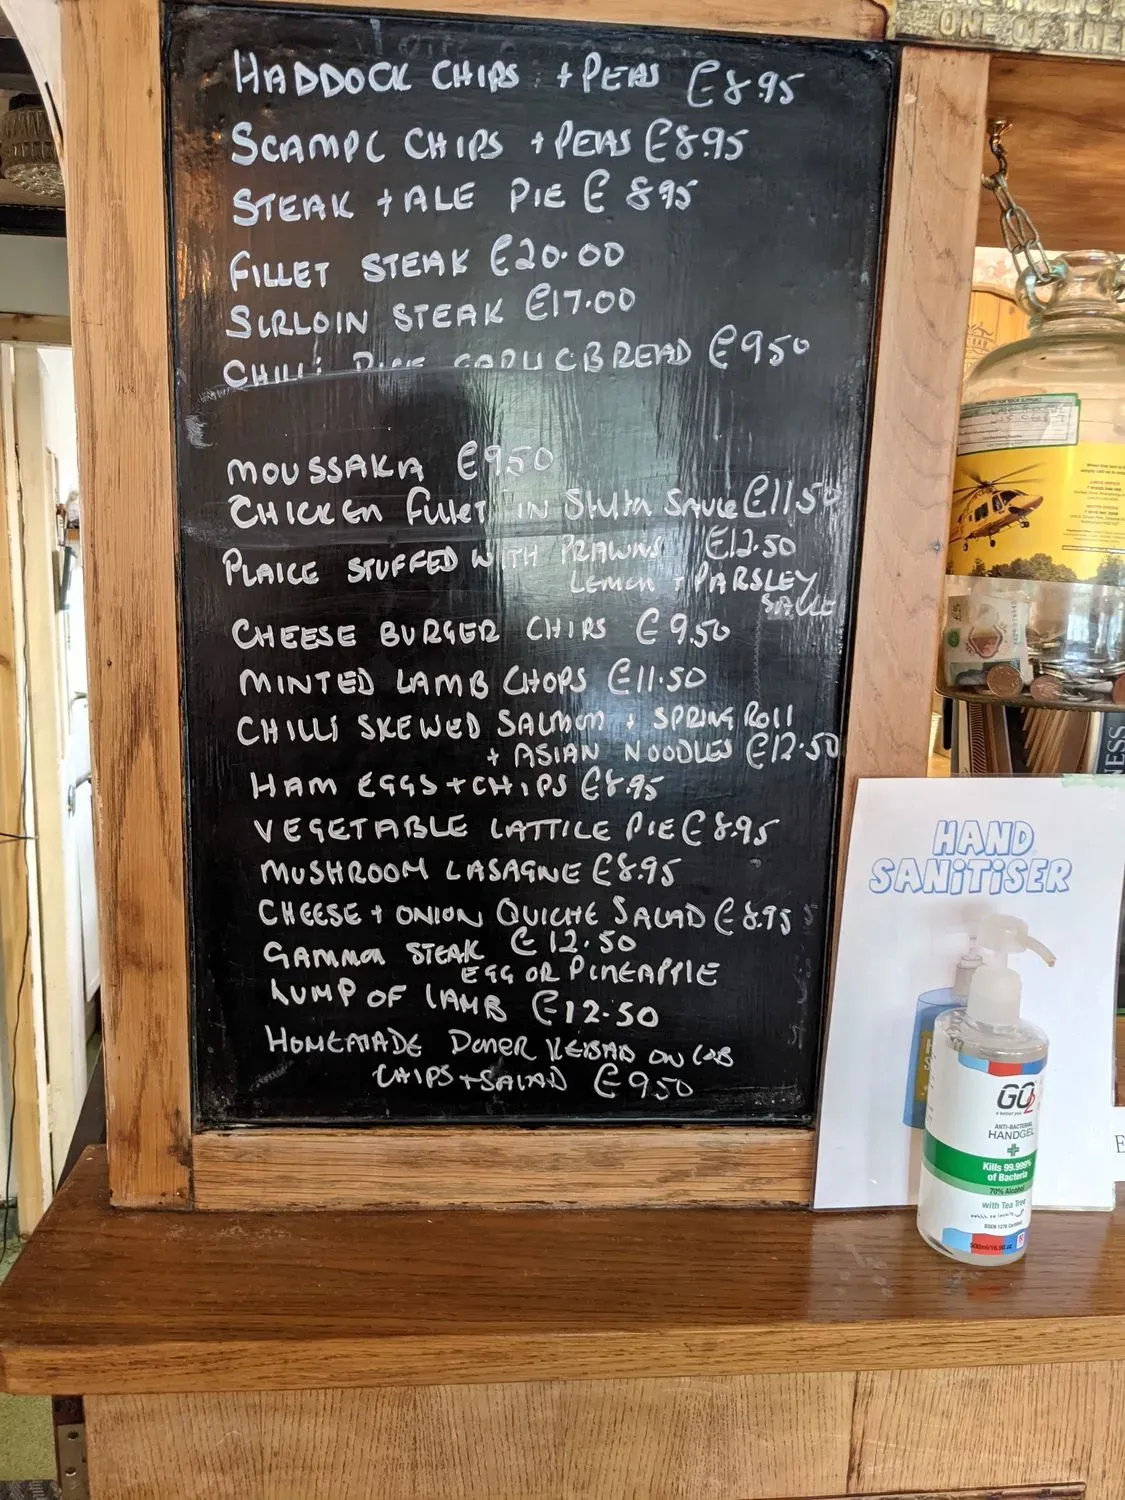 HADDOCK CHIPS + PEAS £8.95
SCAMPI CHIPS + PEAS £8.95
STEAK + ALE PIE £8.95
FILLET STEAK £20.00
SIRLOIN STEAK £17.00
CHILLI RICE GARLIC BREAD £9.50
MOUSSAKA £9.50
CHICKEN FILLET IN SAUCE £11.50
PLAICE STUFFED WITH PRAWNS £12.50
LEMON + PARSLEY
SAUCE
CHEESE BURGER CHIPS £9.50
MINTED LAMB CHOPS £11.50
CHILLI SKEWED SALMON + SPRING ROLL
+ ASIAN NOODLES £12.50
HAM EGGS + CHIPS £8.95
VEGETABLE LATTICE PIE £8.95
MUSHROOM LASAGNE £8.95
CHEESE + ONION QUICHE SALAD £8.95
GAMMON STEAK £12.50
EGG OR PINEAPPLE
LUMP OF LAMB £12.50
HOMEMADE DONER KEBAB ON
CHIPS + SALAD £9.50
ONE OF THE
HAND
SANITISER
GO2
ANTI-BACTERIAL
HANDGEL
Kills 99.999%
of Bacteria
70% Alcohol
with Tea Tree